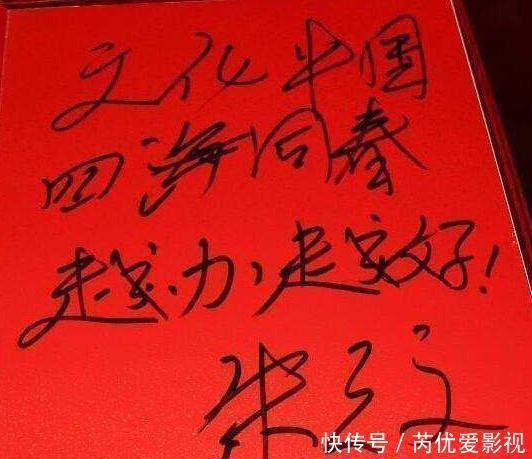 文化中国
四海同春
越办越好!
朱之文
快传号/芮优爱影视